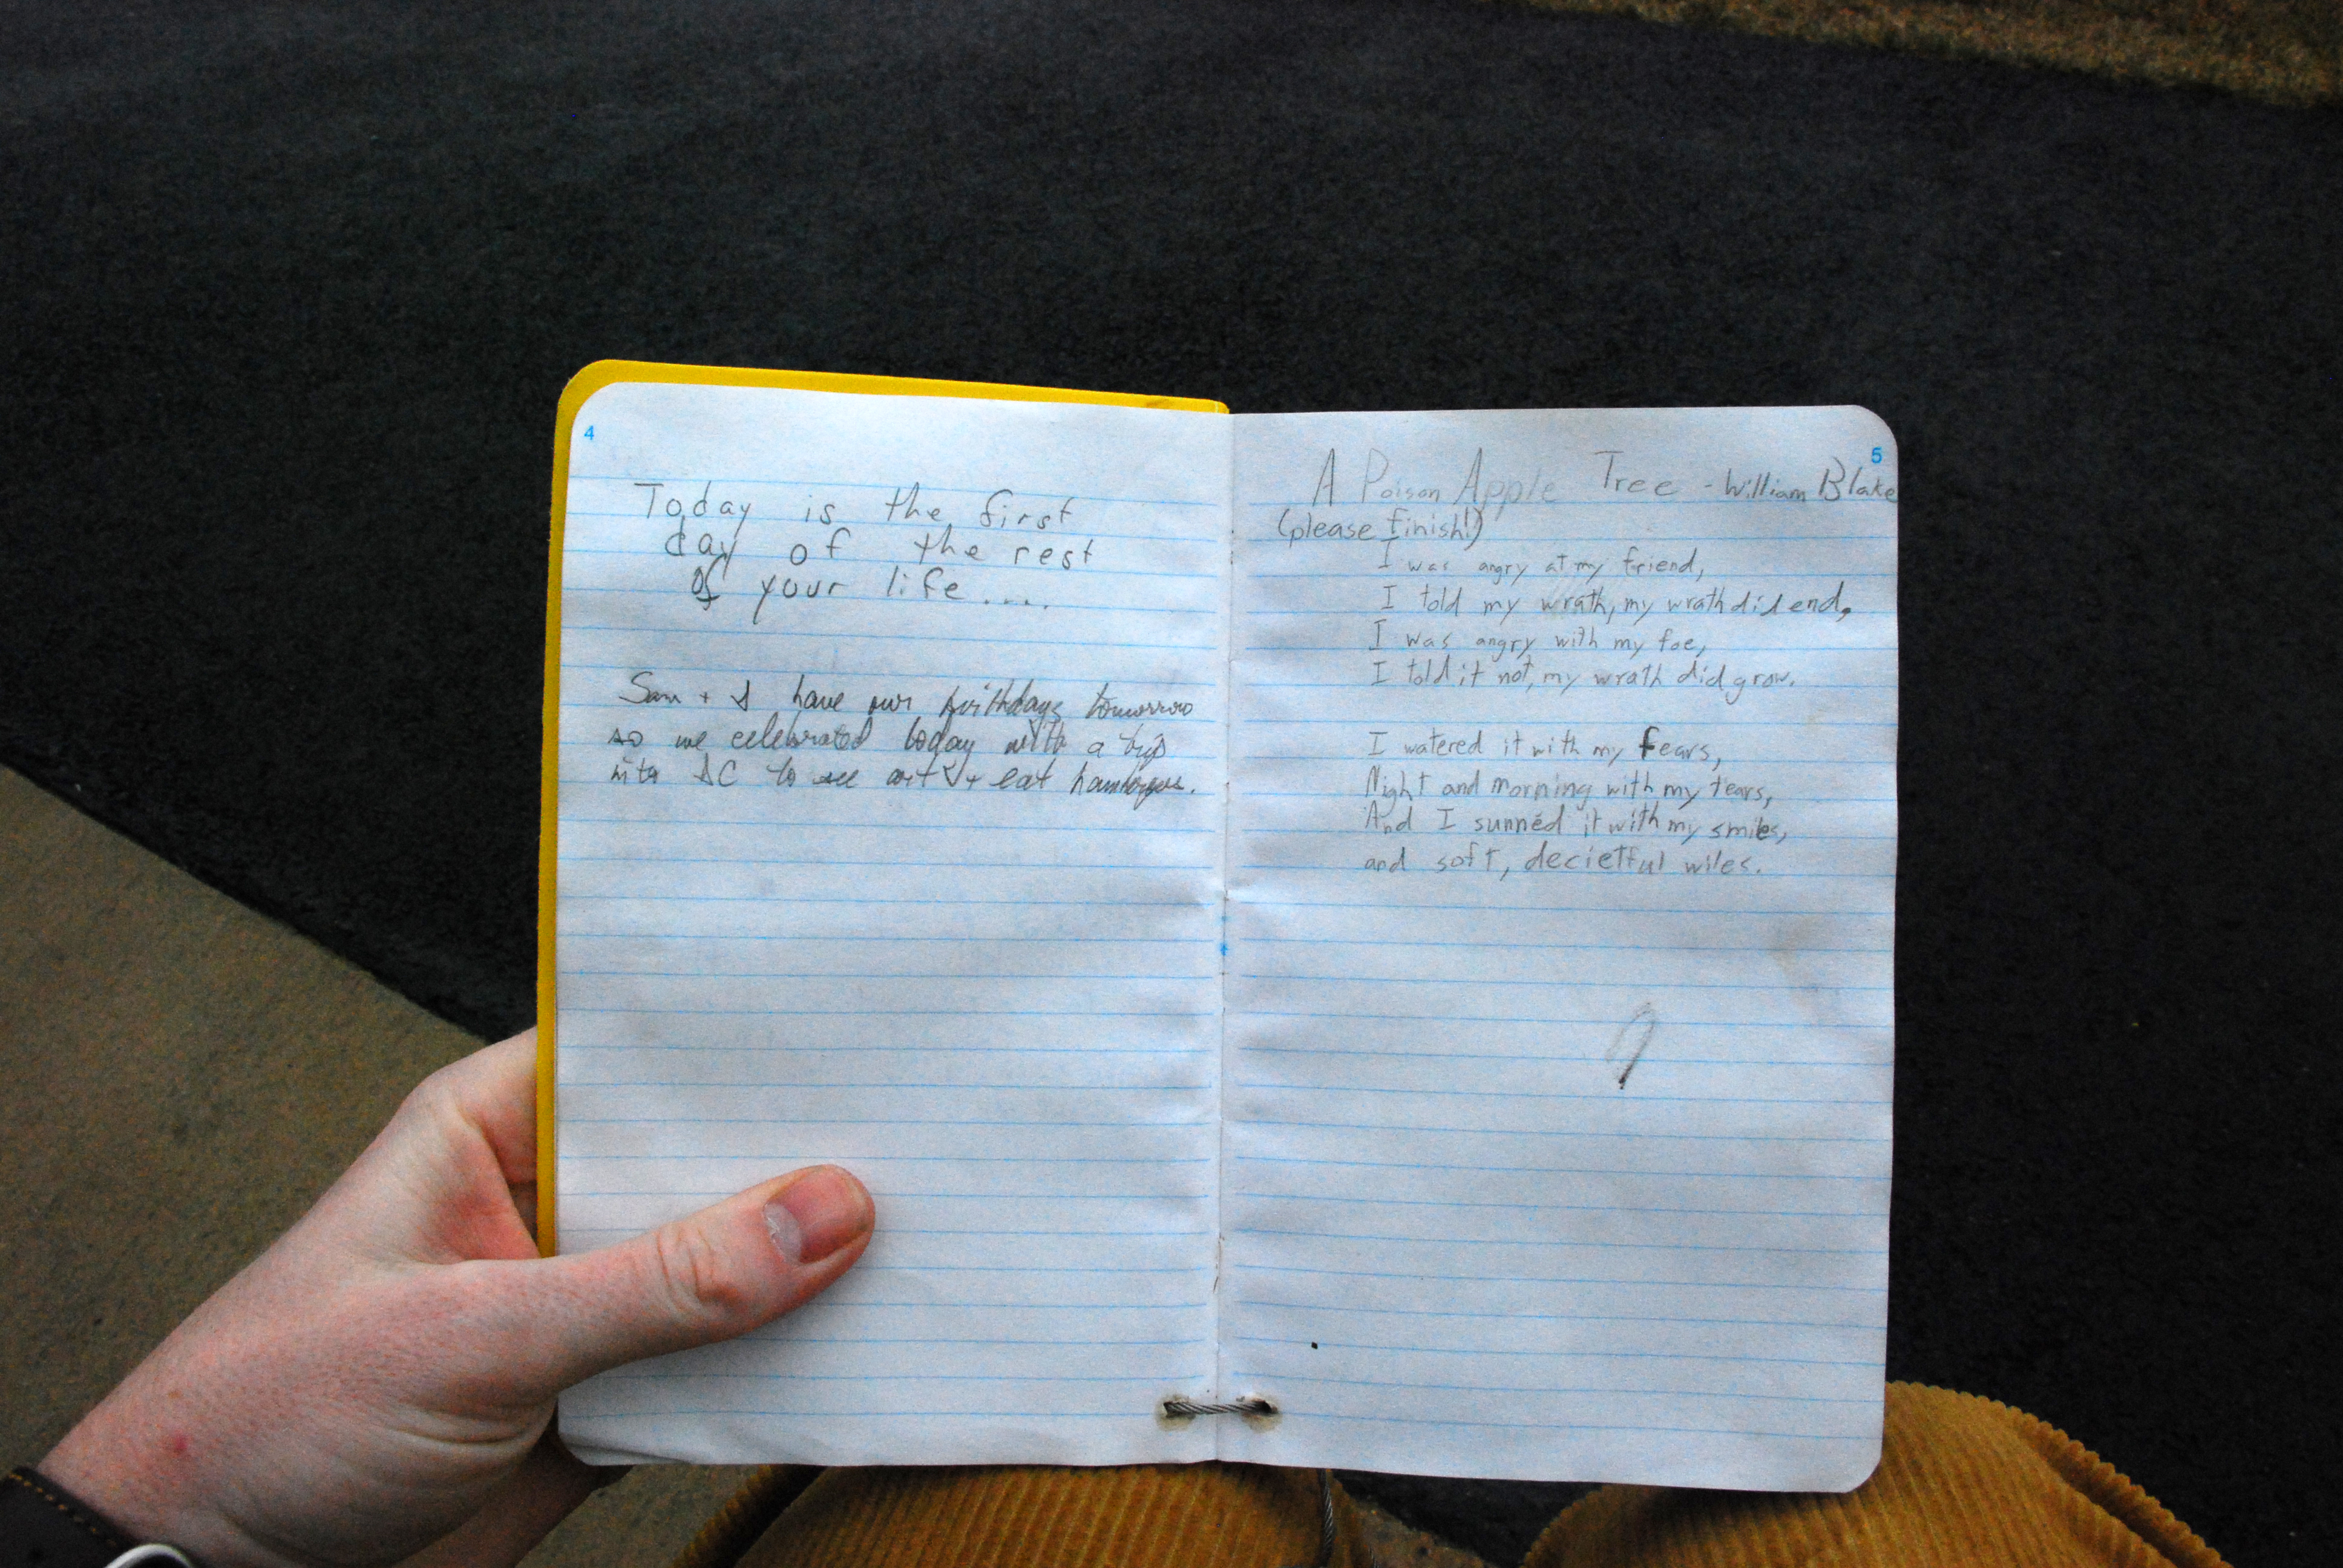 4
Today is the first
day of the rest
of your life....
Sam + I have our birthdays tomorrow
so we celebrated today with a trip
into DC to see art + eat
5
A Poison Apple Tree - William Blake
(please finish!)
I was angry at my friend,
I told my wrath, my wrath did end,
I was angry with my foe,
I told it not, my wrath did grow.
I watered it with my fears,
Night and morning with my tears,
And I sunnéd it with my smiles,
and soft, decietful wiles.